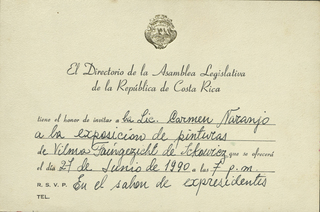 El Directorio de la Asamblea Legislativa
de la República de Costa Rica
tiene el honor de invitar a la Lic. Carmen Naranjo
a la exposición de pinturas
de Vilma Faingezicht de que se ofrecerá
el día 27 de Junio de 1990 a las 7 p.m
R. S. V. P. En el salon de expresidentes
TEL.